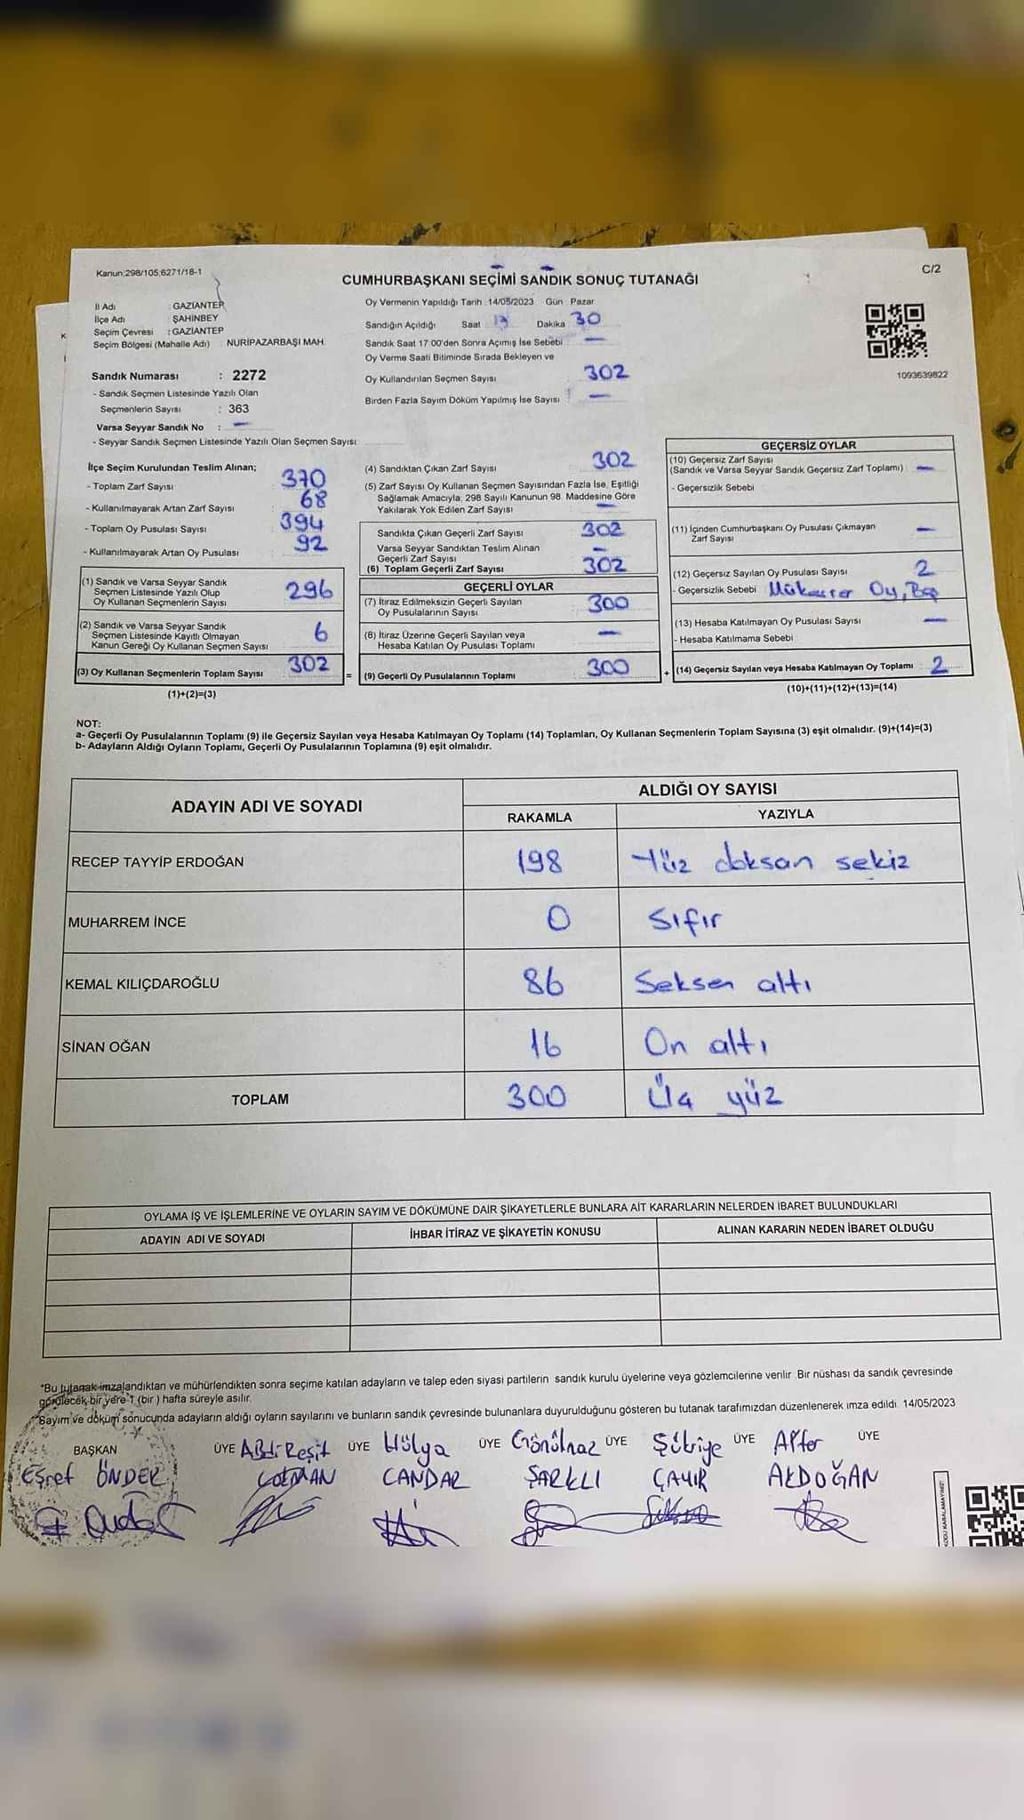 Kanun:298/105;6271/18-1
C/2
CUMHURBAŞKANI SEÇİMİ SANDIK SONUÇ TUTANAĞI
İl Adı GAZİANTEP
İlçe Adı ŞAHİNBEY
Seçim Çevresi : GAZİANTEP
Seçim Bölgesi (Mahalle Adı) NURİPAZARBAŞI MAH.
Sandık Numarası : 2272
- Sandık Seçmen Listesinde Yazılı Olan
Seçmenlerin Sayısı : 363
Varsa Seyyar Sandık No : —
- Seyyar Sandık Seçmen Listesinde Yazılı Olan Seçmen Sayısı
Oy Vermenin Yapıldığı Tarih : 14/05/2023 Gün Pazar
Sandığın Açıldığı Saat Dakika 30
Sandık Saat 17:00'den Sonra Açımış İse Sebebi —
Oy Verme Saati Bitiminde Sırada Bekleyen ve
Oy Kullandırılan Seçmen Sayısı 302
Birden Fazla Sayım Döküm Yapılmış İse Sayısı —
1093639822
İlçe Seçim Kurulundan Teslim Alınan;
- Toplam Zarf Sayısı 370
- Kullanılmayarak Artan Zarf Sayısı 68
- Toplam Oy Pusulası Sayısı 394
- Kullanılmayarak Artan Oy Pusulası 92
(1) Sandık ve Varsa Seyyar Sandık
Seçmen Listesinde Yazılı Olup
Oy Kullanan Seçmenlerin Sayısı 296
(2) Sandık ve Varsa Seyyar Sandık
Seçmen Listesinde Kayıtlı Olmayan
Kanun Gereği Oy Kullanan Seçmen Sayısı 6
(3) Oy Kullanan Seçmenlerin Toplam Sayısı 302
(1)+(2)=(3)
(4) Sandıktan Çıkan Zarf Sayısı 302
(5) Zarf Sayısı Oy Kullanan Seçmen Sayısından Fazla İse, Eşitliği
Sağlamak Amacıyla, 298 Sayılı Kanunun 98. Maddesine Göre
Yakılarak Yok Edilen Zarf Sayısı —
Sandıkta Çıkan Geçerli Zarf Sayısı 302
Varsa Seyyar Sandıktan Teslim Alınan
Geçerli Zarf Sayısı —
(6) Toplam Geçerli Zarf Sayısı 302
GEÇERLİ OYLAR
(7) İtiraz Edilmeksizin Geçerli Sayılan
Oy Pusulalarının Sayısı 300
(8) İtiraz Üzerine Geçerli Sayılan veya
Hesaba Katılan Oy Pusulası Toplamı —
= (9) Geçerli Oy Pusulalarının Toplamı 300
GEÇERSİZ OYLAR
(10) Geçersiz Zarf Sayısı
(Sandık ve Varsa Seyyar Sandık Geçersiz Zarf Toplamı) —
- Geçersizlik Sebebi
(11) İçinden Cumhurbaşkanı Oy Pusulası Çıkmayan
Zarf Sayısı —
(12) Geçersiz Sayılan Oy Pusulası Sayısı 2
- Geçersizlik Sebebi Oy,
(13) Hesaba Katılmayan Oy Pusulası Sayısı —
- Hesaba Katılmama Sebebi
+ (14) Geçersiz Sayılan veya Hesaba Katılmayan Oy Toplamı 2
(10)+(11)+(12)+(13)=(14)
NOT:
a- Geçerli Oy Pusulalarının Toplamı (9) ile Geçersiz Sayılan veya Hesaba Katılmayan Oy Toplamı (14) Toplamları, Oy Kullanan Seçmenlerin Toplam Sayısına (3) eşit olmalıdır. (9)+(14)=(3)
b- Adayların Aldığı Oyların Toplamı, Geçerli Oy Pusulalarının Toplamına (9) eşit olmalıdır.
ADAYIN ADI VE SOYADI
ALDIĞI OY SAYISI
RAKAMLA YAZIYLA
RECEP TAYYİP ERDOĞAN 198 Yüz doksan sekiz
MUHARREM İNCE 0 Sıfır
KEMAL KILIÇDAROĞLU 86 Seksen altı
SİNAN OĞAN 16 On altı
TOPLAM 300 Üç yüz
OYLAMA İŞ VE İŞLEMLERİNE VE OYLARIN SAYIM VE DÖKÜMÜNE DAİR ŞİKAYETLERLE BUNLARA AİT KARARLARIN NELERDEN İBARET BULUNDUKLARI
ADAYIN ADI VE SOYADI İHBAR İTİRAZ VE ŞİKAYETİN KONUSU ALINAN KARARIN NEDEN İBARET OLDUĞU
*Bu tutanak imzalandıktan ve mühürlendikten sonra seçime katılan adayların ve talep eden siyasi partilerin sandık kurulu üyelerine veya gözlemcilerine verilir. Bir nüshası da sandık çevresinde
görülecek bir yere 1 (bir) hafta süreyle asılır.
*Sayım ve döküm sonucunda adayların aldığı oyların sayılarını ve bunların sandık çevresinde bulunanlara duyurulduğunu gösteren bu tutanak tarafımızdan düzenlenerek imza edildi. 14/05/2023
BAŞKAN ÜYE ÜYE ÜYE ÜYE ÜYE ÜYE
Eşref ÖNDER
Hülya CANDAR
Gönülnaz ŞARKLI
ÇAYIR
AKDOĞAN